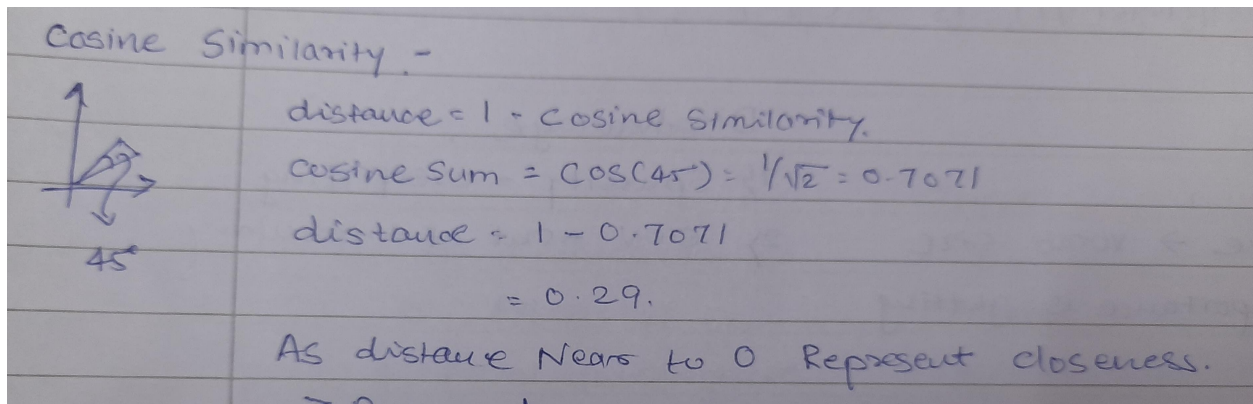 Cosine Similarity :-
distance = 1 - Cosine Similarity.
Cosine Sum = COS(45) = 1/√2 = 0.7071
distance = 1 - 0.7071
45°
= 0.29.
As distance Near to 0 Represent closeness.